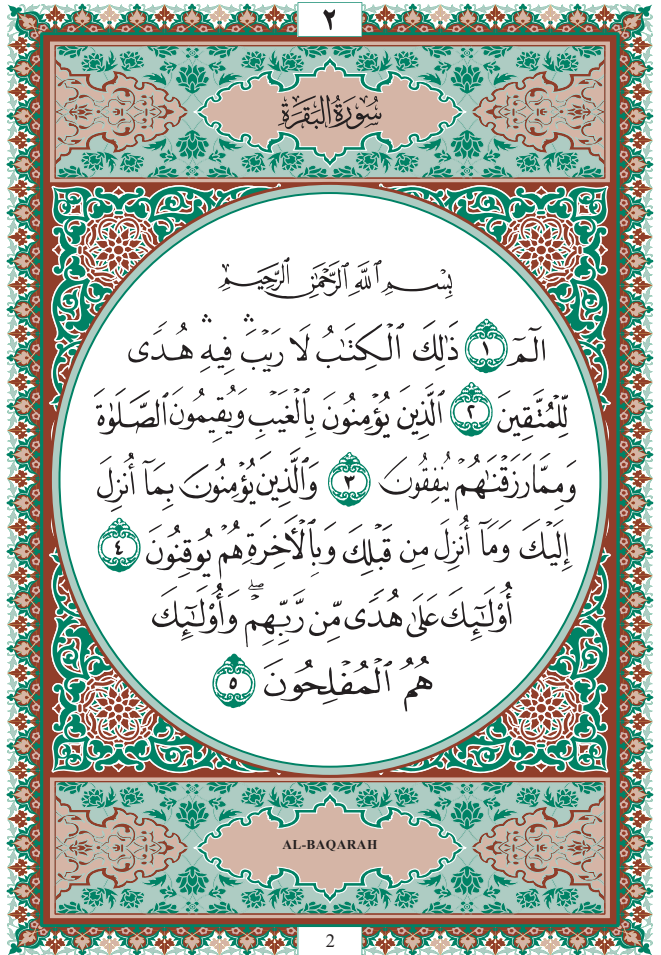 ٢
سُورَةُ الْبَقَرَةِ
بِسْمِ ٱللَّهِ ٱلرَّحْمَٰنِ ٱلرَّحِيمِ
الٓمٓ ١ ذَٰلِكَ ٱلْكِتَٰبُ لَا رَيْبَ ۛ فِيهِ ۛ هُدًى
لِّلْمُتَّقِينَ ٢ ٱلَّذِينَ يُؤْمِنُونَ بِٱلْغَيْبِ وَيُقِيمُونَ ٱلصَّلَوٰةَ
وَمِمَّا رَزَقْنَٰهُمْ يُنفِقُونَ ٣ وَٱلَّذِينَ يُؤْمِنُونَ بِمَآ أُنزِلَ
إِلَيْكَ وَمَآ أُنزِلَ مِن قَبْلِكَ وَبِٱلْءَاخِرَةِ هُمْ يُوقِنُونَ ٤
أُو۟لَٰٓئِكَ عَلَىٰ هُدًى مِّن رَّبِّهِمْ ۖ وَأُو۟لَٰٓئِكَ
هُمُ ٱلْمُفْلِحُونَ ٥
AL-BAQARAH
2